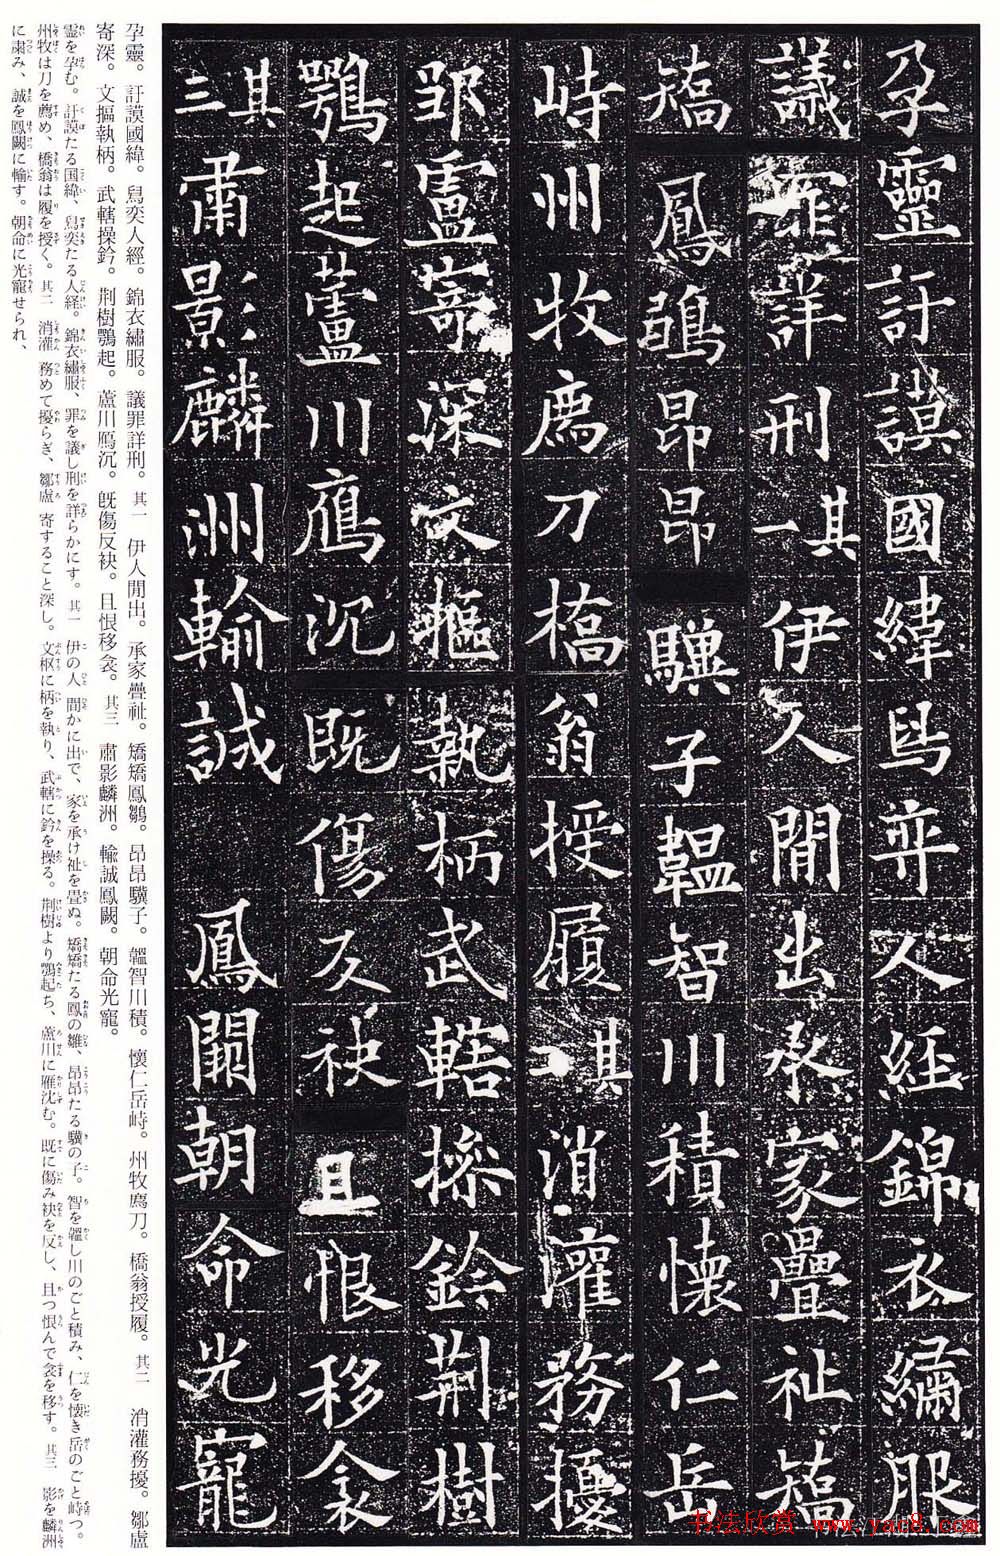 孕靈訏謨國緯舄弈人經錦衣繡服
議罪詳刑其一伊人閒出承家疊祉矯
矯鳳鶵昂昂驥子韞智川積懷仁岳
峙州牧薦刀橋翁授履其二消灌務擾
邹盧寄深文摳執柄武轄操鈐荆樹
鶚起蘆川鴈沉既傷反袂且恨移衾
其三肅影麟洲輸誠鳳闕朝命光寵
孕靈。訏謨國緯。舄奕人經。錦衣繡服。議罪詳刑。其一 伊人閒出。承家疊祉。矯矯鳳鶵。昂昂驥子。韞智川積。懷仁岳峙。州牧薦刀。橋翁授履。其二 消灌務擾。鄒盧
寄深。文摳執柄。武轄操鈐。荆樹鶚起。蘆川鴈沉。既傷反袂。且恨移衾。其三 肅影麟洲。輸誠鳳闕。朝命光寵。
霊を孕む。訏謨たる国緯、舄奕たる人経。錦衣繡服、罪を議し刑を詳らかにす。其一 伊の人 間かに出で、家を承け祉を畳ぬ。矯矯たる鳳の雛、昂昂たる驥の子。智を韞し川のごと積み、仁を懐き岳のごと峙つ。
州牧は刀を薦め、橋翁は履を授く。其二 消灌 務めて擾らぎ、鄒盧 寄すること深し。文枢に柄を執り、武轄に鈐を操る。荆樹より鶚起ち、蘆川に雁沈む。既に傷み袂を反し、且つ恨んで衾を移す。其三 影を麟洲
に粛み、誠を鳳闕に輸す。朝命に光寵せられ、
书法欣赏 www.yac8.com